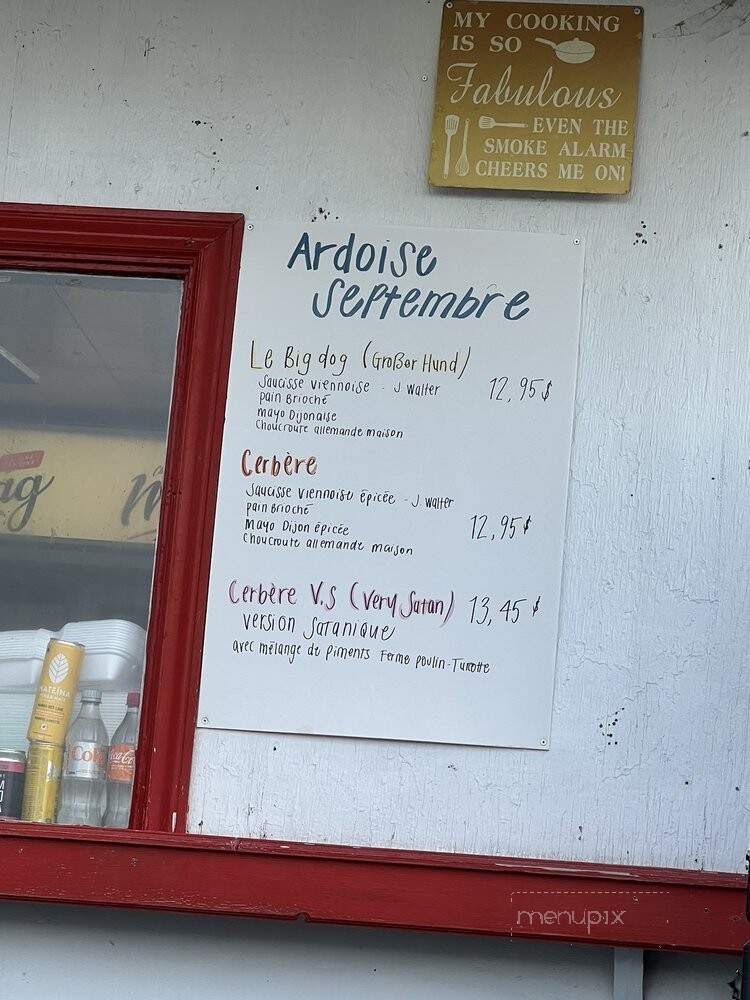 MY COOKING
IS SO
Fabulous
EVEN THE
SMOKE ALARM
CHEERS ME ON!
Ardoise
Septembre
Le Big dog (Großer Hund)
Saucisse viennoise - J. Walter
12,95$
pain Brioché
mayo Dijonaise
Choucroute allemande maison
Cerbère
Saucisse viennoise épicée - J. Walter
pain Brioché
Mayo Dijon épicée
12,95$
Choucroute allemande maison
Cerbère V.S (Very Satan) 13,45$
version Satanique
avec mélange de piments Ferme Poulin-Turcotte
MATEÏNA
menupix